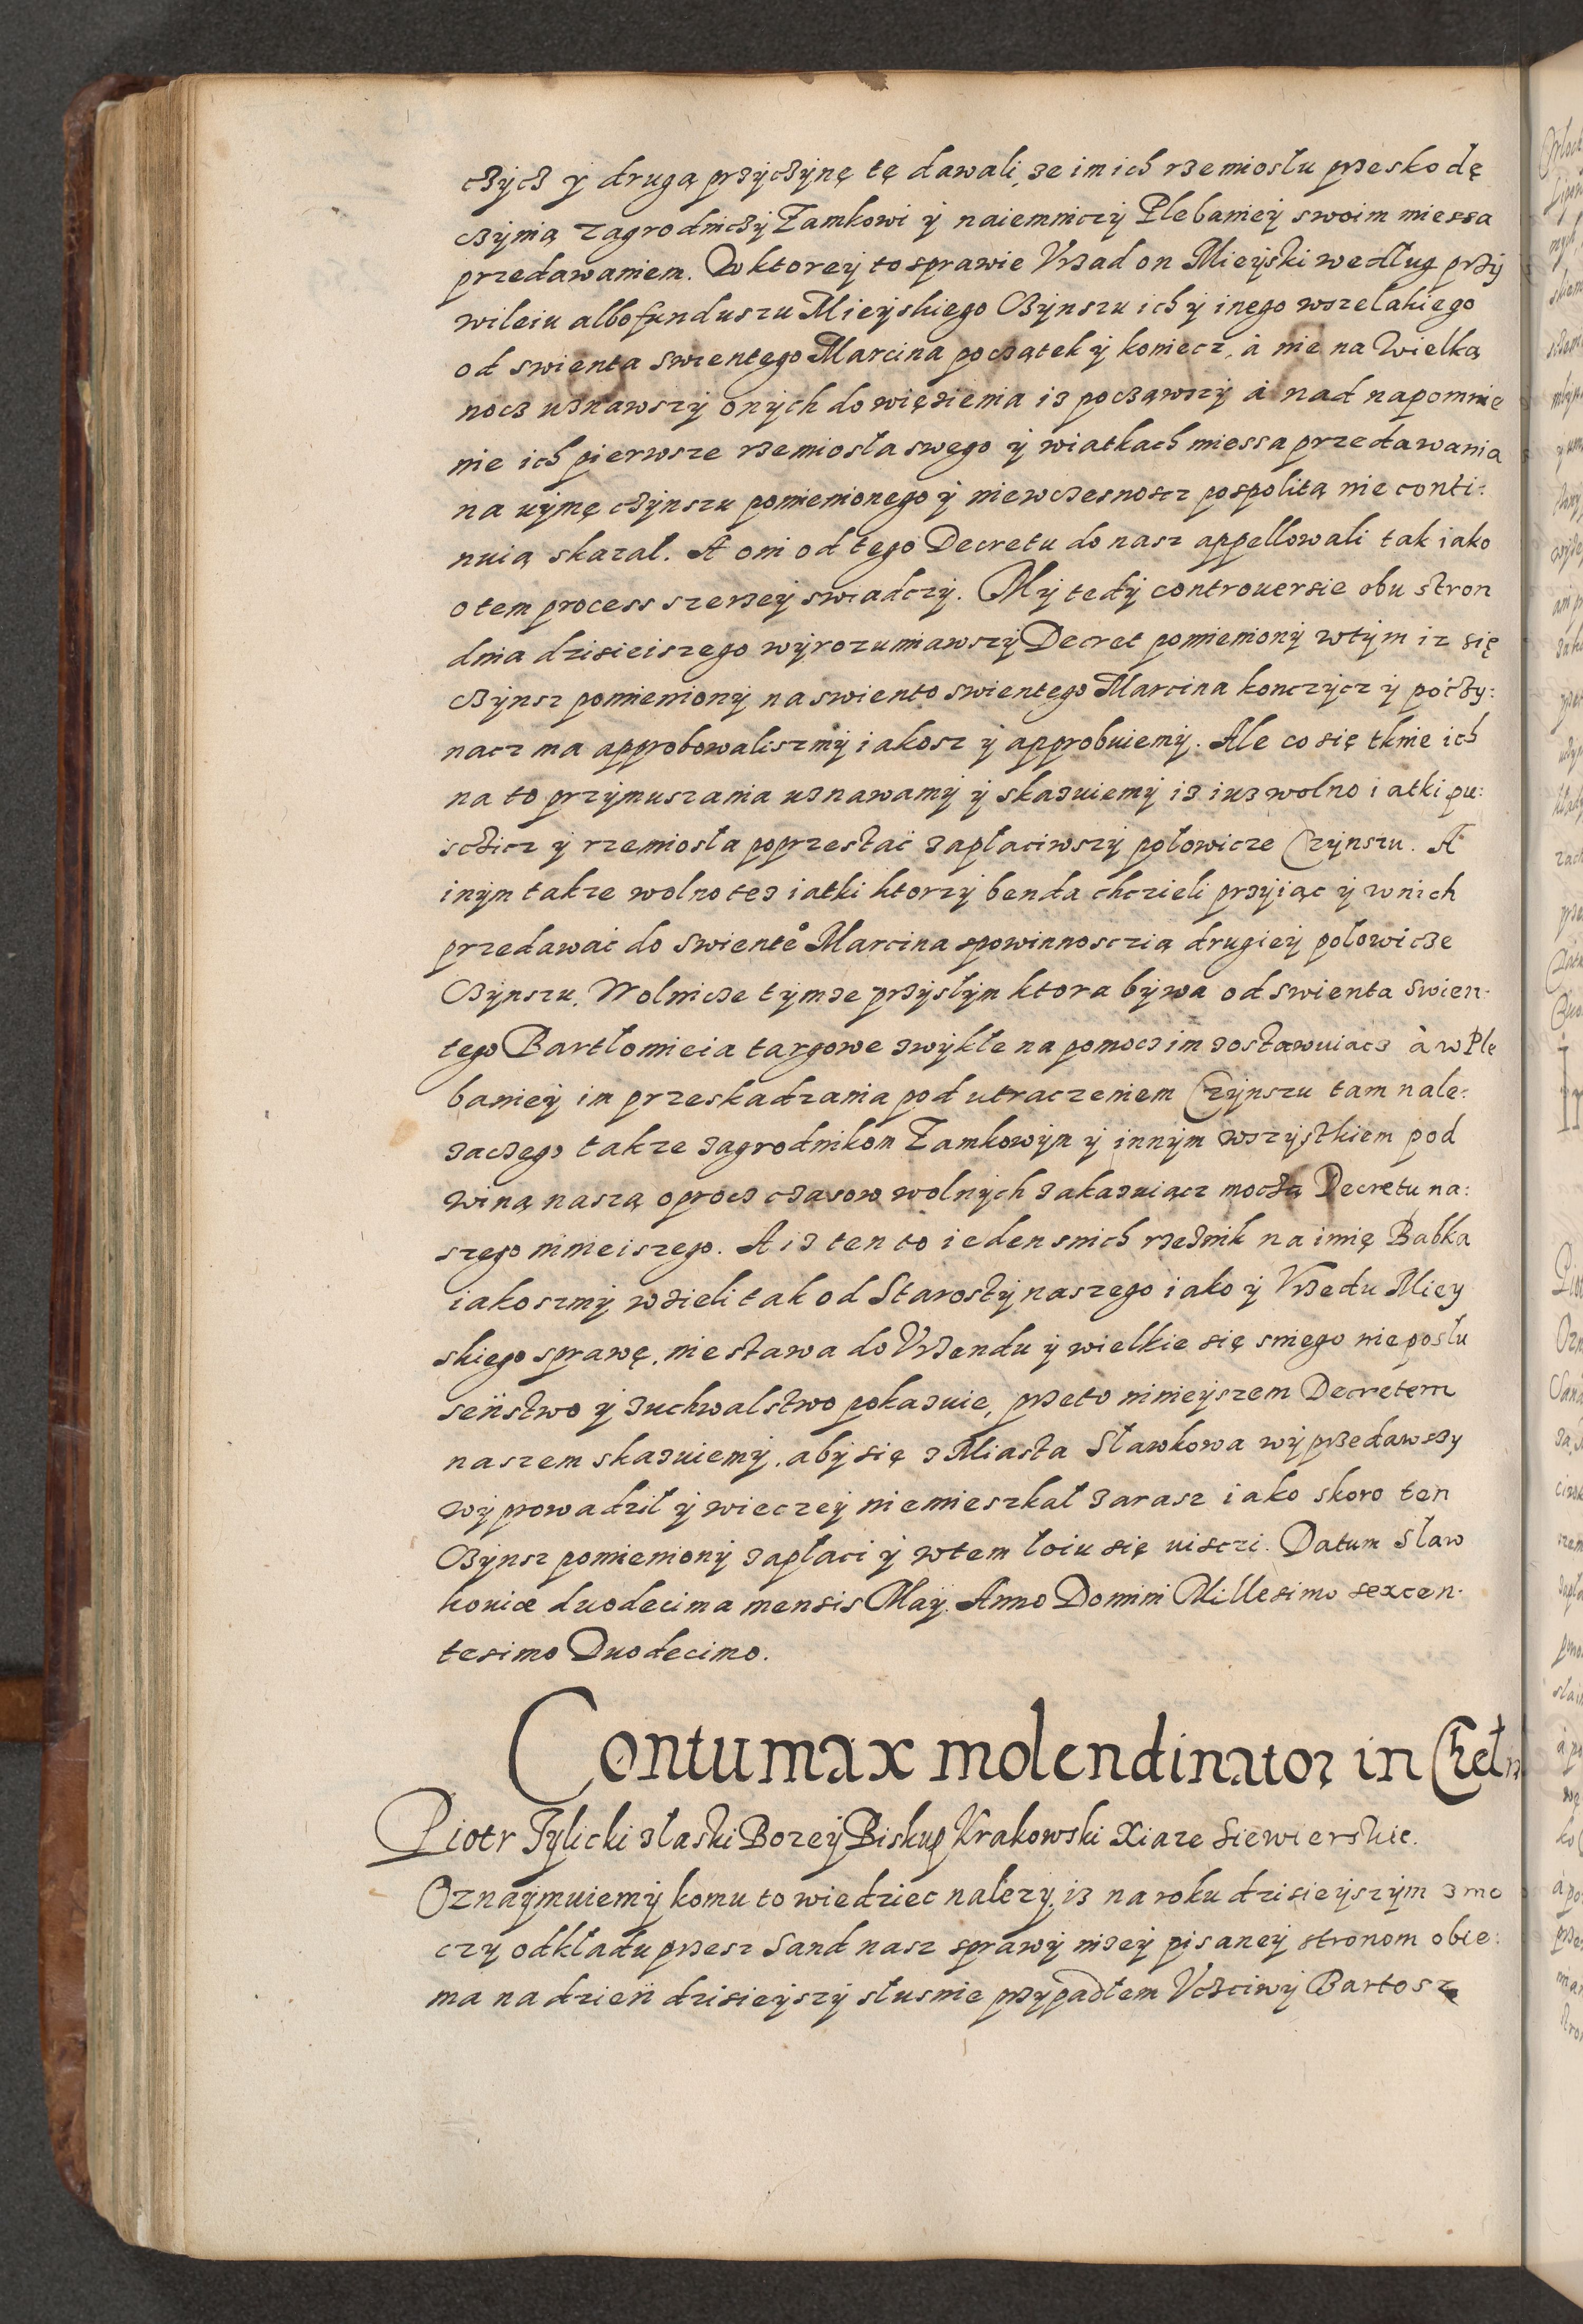 czycz y drugą przyczynę tę dawali, ze im ich rzemiosłu przeskodę
czynią zagrodniczy Zamkowi y naiemniczy Plebaniey swoim miessa
przedawaniem. W ktorey to sprawie Vrzad on Mieyski według przy
wileiu albo funduszu Mieyskiego Czynszu ich y inego wszelakiego
od swienta swientego Marcina początek y koniecz, à nie na Wielką
nocz uznawszy onych do więzienia iz począwszy á nad napomnie
nie ich pierwsze rzemiosła swego y wiatkach miessa przedawania
na uymę czynszu pomienionego y niewczesnoscz pospolitą nie conti:
nuią skazał. A oni od tego Decretu do nasz appellowali tak iako
o tem process szerzey swiadczy. My tedy controuersie obu stron
dnia dzisieiszego wyrozumiawszy Decret pomieniony w tym iz się
Czynsz pomieniony na swiento swientego Marcina konczycz y poczy:
nacz ma approbowaliszmy iakosz y approbuiemy. Ale co się tknie ich
na to przymuszania uznawamy y skazuiemy iz iuz wolno iatki pu:
sczicz y rzemiosła poprzestać zapłaciwszy połowicze Czynszu. A
inym takze wolno tez iatki ktorzy benda chczieli przyiąc y w nich
przedawać do swienteo Marcina spowinnosczią drugiey połowicze
Czynszu. Wolnicze tymze przysłym ktora bywa od swienta Swien:
tego Bartłomieia targowe zwykłe na pomocz im zostawuiacz à w Ple
baniey im przeskadzania pod utraczeniem Czynszu tam nale:
zaczego takze zagrodnikom Zamkowym y innym wszystkiem pod
winą naszą oprocz czasow wolnych zakazuiącz moczą Decretu na:
szego ninieiszego. A iz ten to ieden snich rzeznik na imię Babka
iakoszmy wzieli tak od Starosty naszego iako y Vrzedu Miey
skiego sprawę, nie stawa do Vrzendu y wielkie się sniego nieposłu
seństwo y zuchwalstwo pokazuie, przeto ninieyszem Decretem
naszem skazuiemy, aby się z Miasta Sławkowa wyprzedawszy
wyprowadził y wieczey niemieszkał zarasz iako skoro ten
Czynsz pomieniony zapłaci y w tem łoiu się uisczi. Datum Slaw
kouiæ duodecima mensis Maÿ. Anno Domini Millesimo sexcen:
tesimo Duodecimo.
Contumax molendinator in Cheł
Piotr Tylicki złaski Bozey Biskup Krakowski Xiaze Siewierskie.
Oznaymuiemy komu to wiedziec nalezy, iz na roku dzisieyszym z mo
czy odkładu przesz Sand nasz sprawy nizey pisaney stronom obie:
ma na dzień dzisieyszy słusnie przypadłem Vczciwy Bartosz